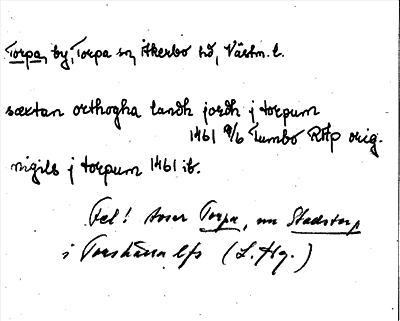 Torpa, by, Torpa sn, Åkerbo hd, Västm. l.
sæxtan örthogha landh jordh j torpum
1461 9/6 Tumbo RAp orig.
nigils j torpum 1461 ib.
Fel! Avser Torpa, nu Stadstorp
i Torshälla lfs (L. Hg.)